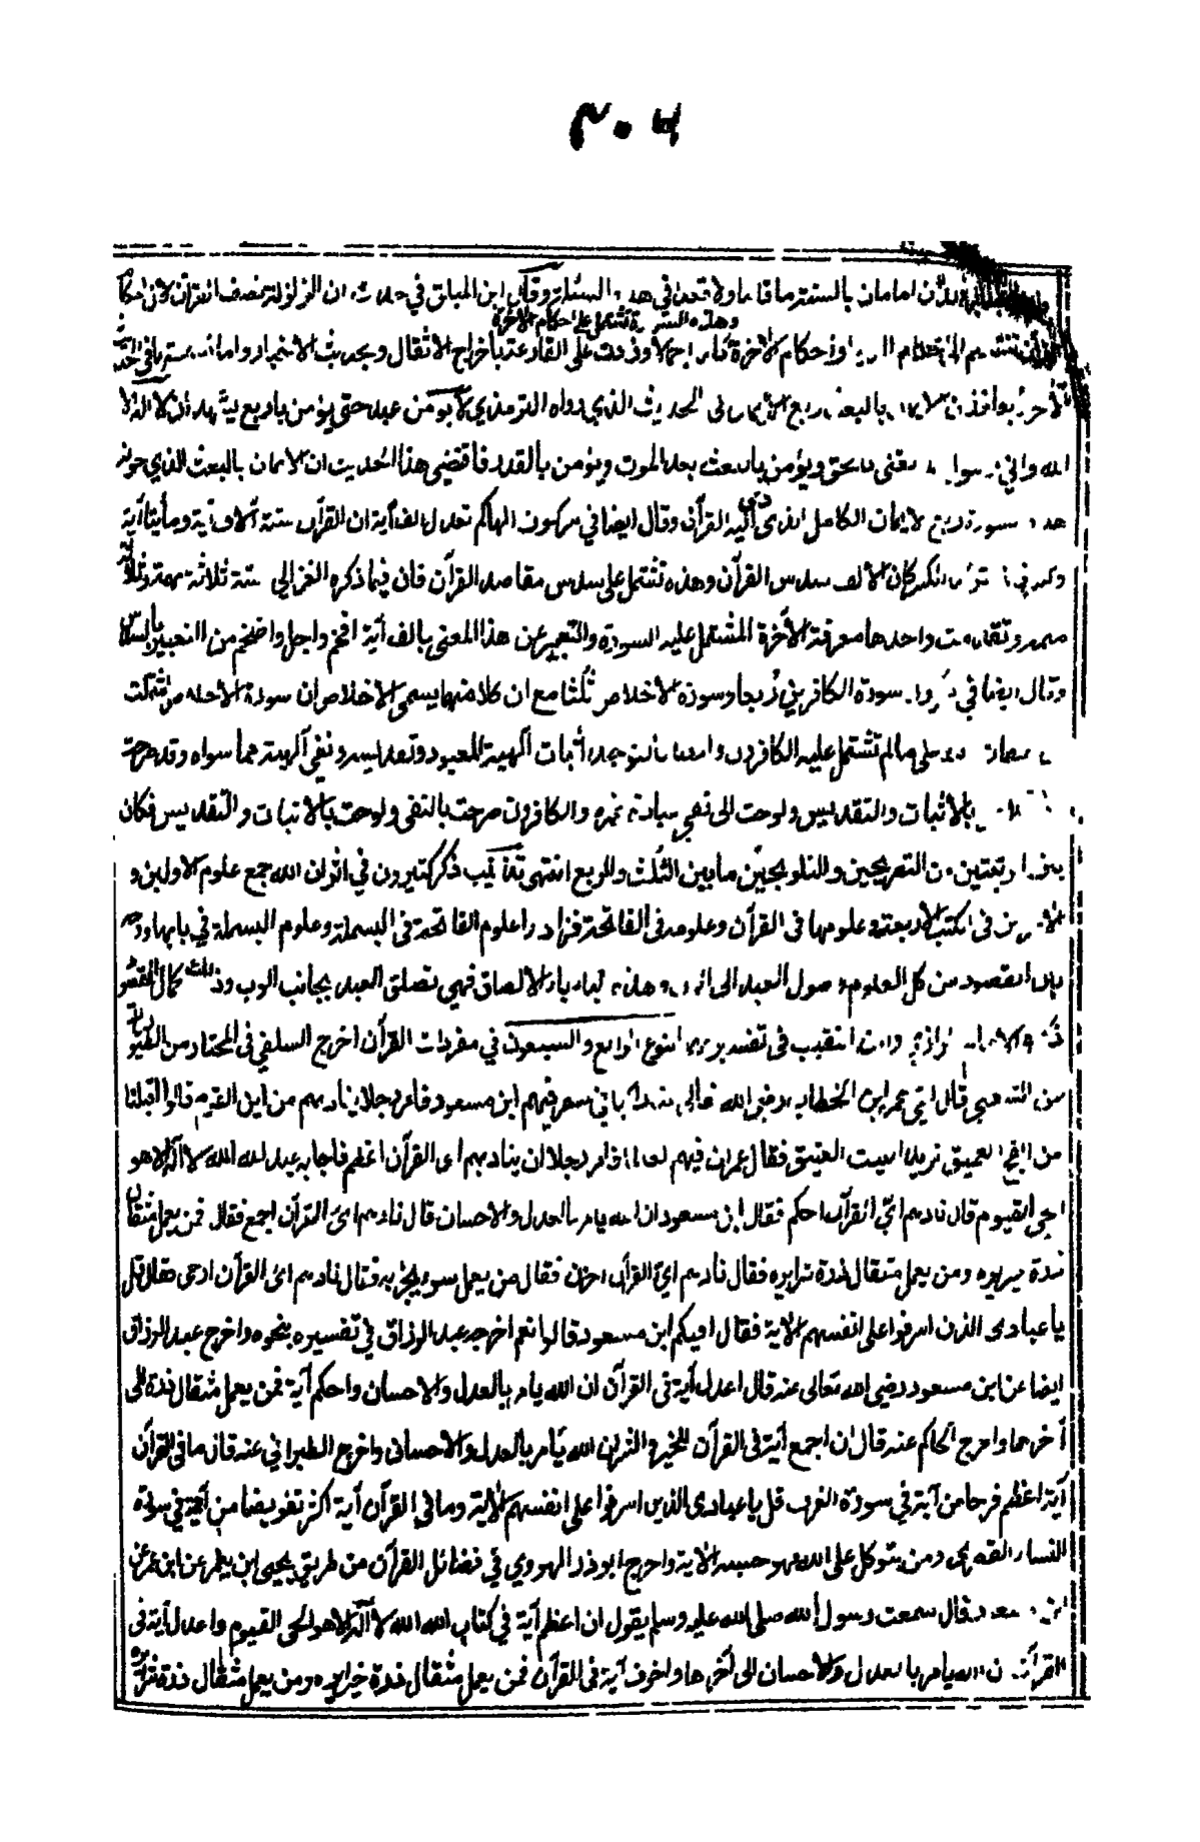 ٣٠٦
امامان بالسنة ما قاما ولا قعدا في هذه المسئلة وقال ابن الميلق في حديث ان الزلزلة نصف القرآن لان احكام
وهذه السورة تشتمل على احكام الآخرة
القرآن تنقسم الى احكام الدنيا واحكام الآخرة كلها اجمالا وزادت على القارعة باخراج الاثقال وبحديث الاخبار واما تسميتها في الحديث
الآخر ربعا فلان الايمان بالبعث ربع الايمان في الحديث الذي رواه الترمذي لا يؤمن عبد حتى يؤمن باربع يشهد أن لا اله الا
الله واني رسول الله بعثني بالحق ويؤمن بالموت ويؤمن بالبعث بعد الموت ويؤمن بالقدر فاقتضى هذا الحديث ان الايمان بالبعث الذي
هذه السورة ربع الايمان الكامل الذي دعى اليه القرآن وقال ايضا في سر كون الهاكم تعدل الف آية ان القرآن ستة آلاف آية ومأيتا آية
كان الالف سدس القرآن وهذه تشتمل على سدس مقاصد القرآن فان فيما ذكره الغزالي ستة ثلاثة مهمة وثلاثة
متمة وتقدمت واحدها معرفة الآخرة المشتمل عليه السورة والتعبير عن هذا المعنى بالف آية افخم واجل واضخم من التعبير بالسدس
وقال ايضا في سورة الكافرين ربعا وسورة الاخلاص ثلثا مع ان كلا منهما يسمى الاخلاص ان سورة الاخلاص اشتملت
من صفات الله على ما لم تشتمل عليه الكافرون وايضا فالتوحيد اثبات الهية المعبود وتقديسه ونفي الهية ما سواه وقد صرحت
بالاثبات والتقديس ولوحت الى نفي عبادة غيره والكافرون صرحت بالنفي ولوحت بالاثبات والتقديس فكان
بين الرتبتين من التصريحين والتلويحين ما بين الثلث والربع انتهى تذنيب ذكر كثيرون في اثر ان الله جمع علوم الاولين و
الآخرين في الكتب الاربعة وعلومها في القرآن وعلومه في الفاتحة فزادوا علوم الفاتحة في البسملة وعلوم البسملة في بائها
بان المقصود من كل العلوم وصول العبد الى الرب وهذه الباء باء الالصاق فهي تلصق العبد بجانب الرب وذلك كمال المقصود
ذكره الامام الرازي وابن النقيب في تفسيريهما النوع الرابع والسبعون في مفردات القرآن اخرج السلفي في المختار من الطيوريات
من الشعبي قال لقي عمر ابن الخطاب رضى الله تعالى عنه ركبا في سفر فيهم ابن مسعود فامر رجلا يناديهم من اين القوم قالوا اقبلنا
من الفج العميق نريد البيت العتيق فقال عمر ان فيهم لعالما فامر رجلا ان يناديهم اى القرآن اعظم فاجابه عبد الله الله لا اله الا هو
الحى القيوم قال نادهم اىّ القرآن احكم فقال ابن مسعود ان الله يامر بالعدل والاحسان قال نادهم اى القرآن اجمع فقال فمن يعمل مثقال
ذرة خيرا يره ومن يعمل مثقال ذرة شرا يره فقال نادهم اىّ القرآن احزن فقال من يعمل سوء يجز به فقال نادهم اىّ القرآن ارجى فقال قل
يا عبادى الذين اسرفوا على انفسهم الآية فقال افيكم ابن مسعود قالوا نعم اخرجه عبد الرزاق في تفسيره بنحوه واخرج عبد الرزاق
ايضا عن ابن مسعود رضي الله تعالى عنه قال اعدل آية في القرآن ان الله يامر بالعدل والاحسان واحكم آية فمن يعمل مثقال ذرة الى
آخرهما واخرج الحاكم عنه قال ان اجمع آية في القرآن للخير والشر ان الله يأمر بالعدل والاحسان واخرج الطبراني عنه قال ما في القرآن
آية اعظم فرحا من آية في سورة الغرف قل يا عبادى الذين اسرفوا على انفسهم الآية وما في القرآن آية اكثر تفويضا من آية في سورة
النساء القصرى ومن يتوكل على الله فهو حسبه الآية واخرج ابو ذر الهروي في فضائل القرآن من طريق يحيى ابن يعمر عن ابن عمر عن
ابن مسعود قال سمعت رسول الله صلى الله عليه وسلم يقول ان اعظم آية في كتاب الله الله لا اله الا هو الحى القيوم واعدل آية في
القرآن ان الله يامر بالعدل والاحسان الى آخرها واخوف آية في القرآن فمن يعمل مثقال ذرة خيرا يره ومن يعمل مثقال ذرة شرا يره